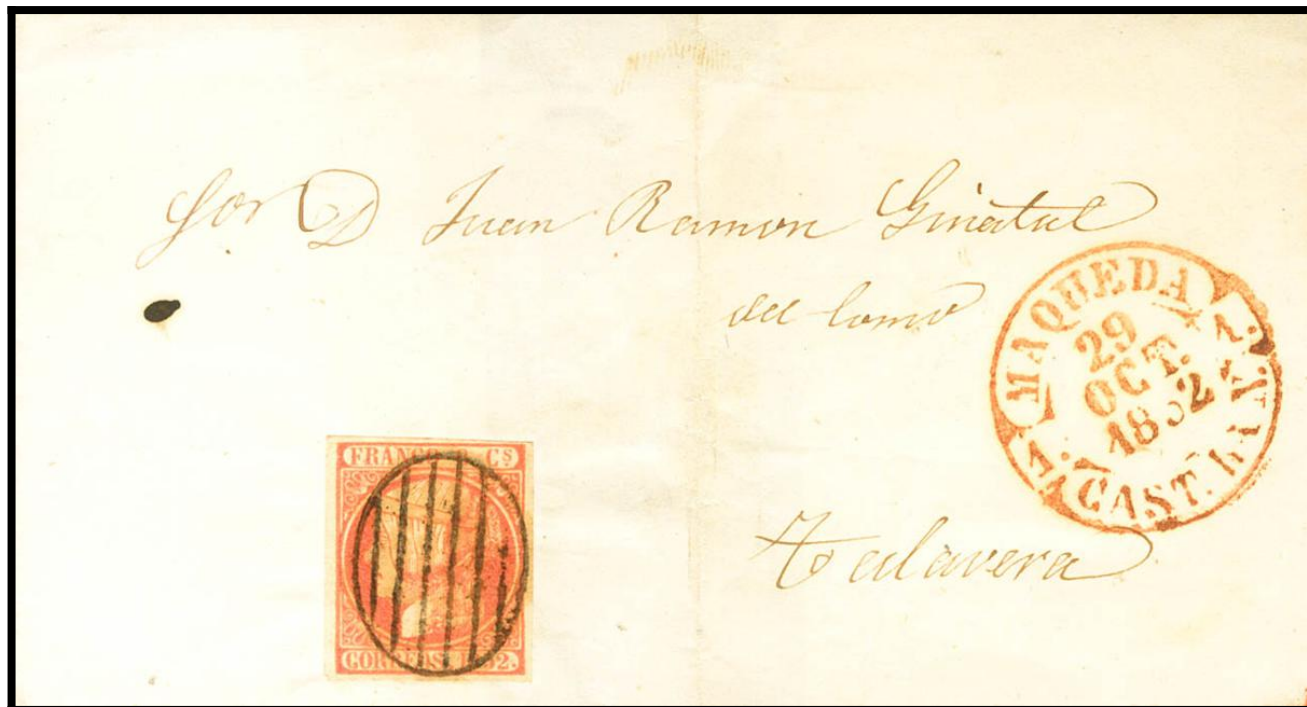 Sor D Juan Ramon Ginatal
del Comº
MAQUEDA
29
OCT.
1852
CAST. LA N.
Talavera
FRANCO CS
CORREOS 1852.